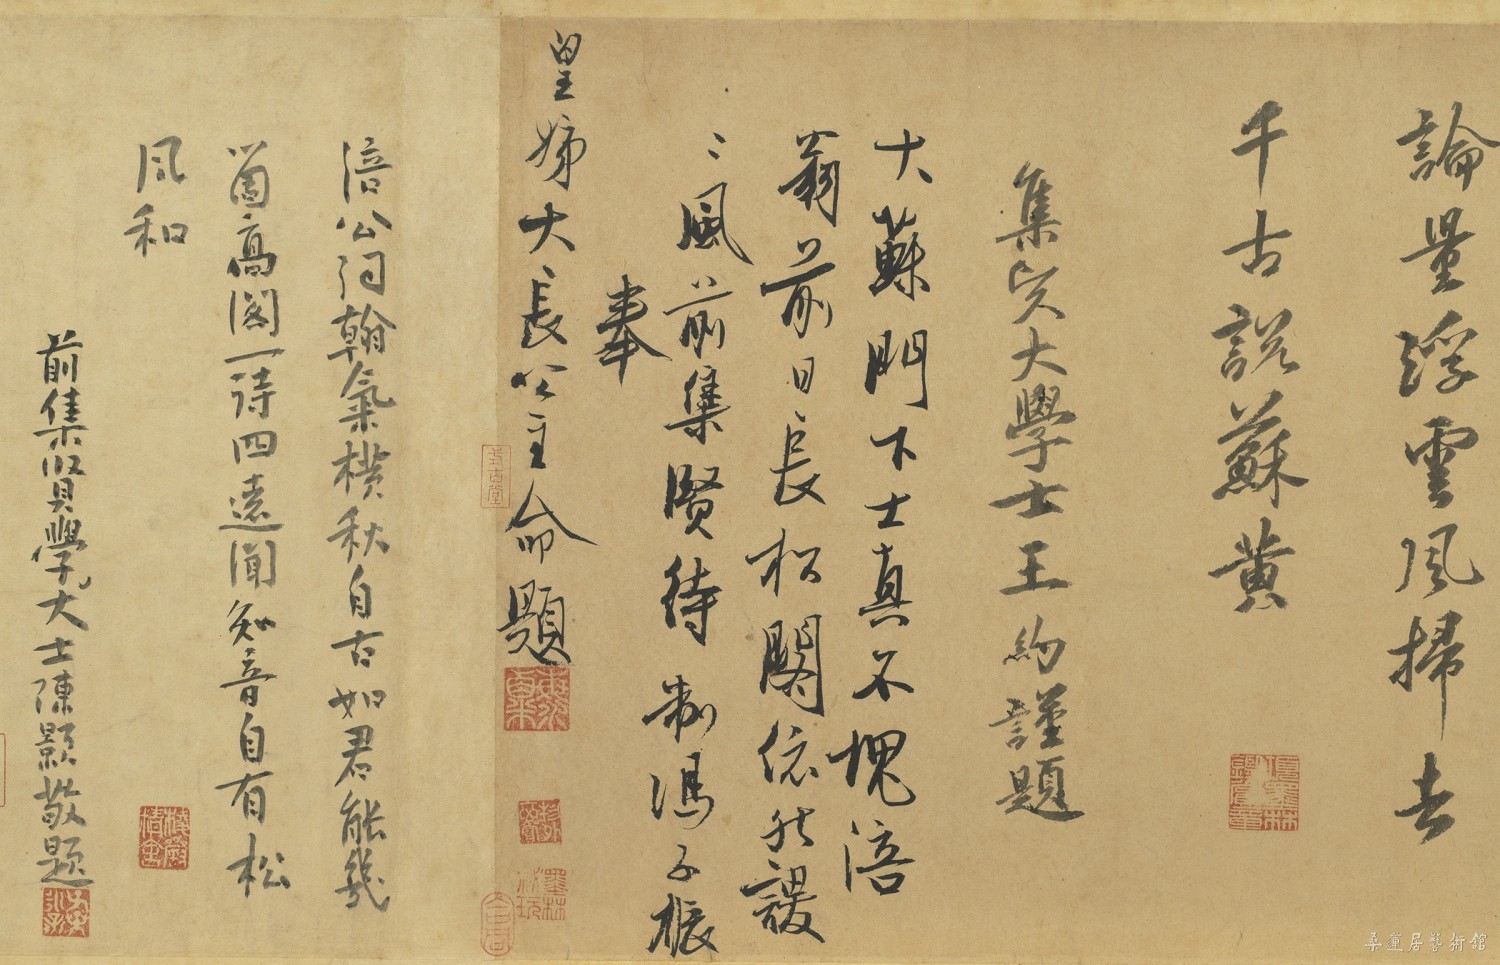 論量浮雲風掃去
千古說蘇黄
集賢大學士王約謹題
大蘇門下士真不愧涪
翁前日長松閣依然謖
〻風前集賢待制馮子振
奉
皇姊大長公主命題
涪公詞翰氣横秋自古如君能幾
箇高閣一詩四遠聞知音自有松
風和
前集賢學大士陳顥敬題
式古堂
桑蓮居藝術館